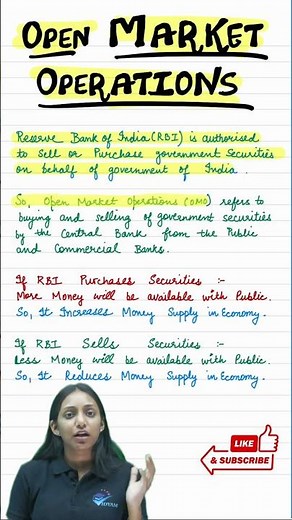 OPEN MARKET
OPERATIONS
Reserve Bank of India (RBI) is authorised
to Sell or Purchase government Securities
on behalf of government of India.
So, Open Market Operations (OMO) refers to
buying and selling of government securities
by the Central Bank from the Public
and Commercial Banks.
If RBI Purchases Securities :-
More Money will be available with Public.
So, It Increases Money Supply in Economy.
If RBI Sells Securities :-
Less Money will be available with Public.
So, It Reduces Money Supply in Economy.
LIKE
& SUBSCRIBE